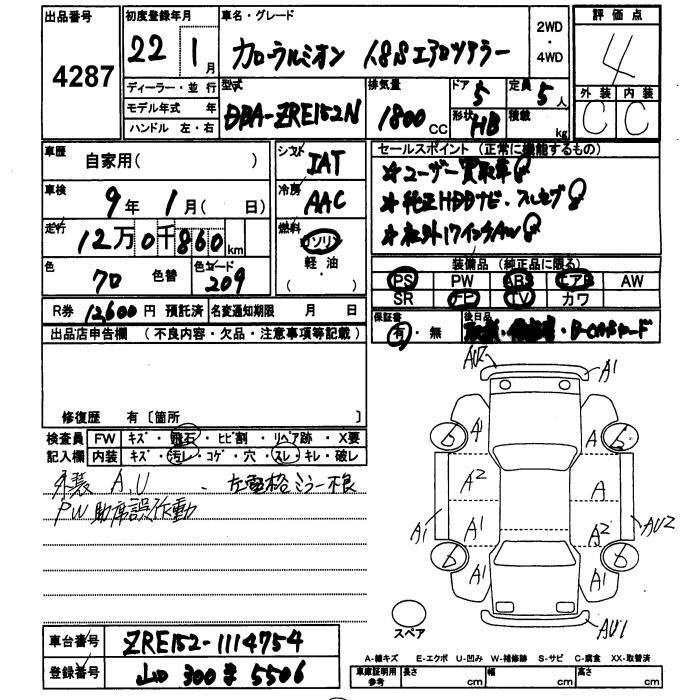 出品番号 4287
初度登録年月 22年 1月
車名・グレード カローラルミオン 1.8S エアロツアラー
2WD・4WD
評価点 4
外装 C 内装 C
ディーラー・並行
モデル年式 年
ハンドル 左・右
型式 DBA-ZRE152N
排気量 1800 CC
ドア 5 形状 HB
定員 5人 積載 kg
車歴 自家用( )
車検 9年 1月( 日)
走行 12万0千860km
色 クロ 色替 色コード 209
シフト IAT
冷房 AAC
燃料 ガソリン 軽油 ( )
セールスポイント (正常に機能するもの)
☆ユーザー買取車
☆純正HDDナビ・フルセグ
☆社外17インチAW
装備品 (純正品に限る)
PS PW ABS エアB AW
SR ナビ TV カワ
保証書 有・無
後日品 ・B-CASカード
R券 12,600円 預託済 名変通知期限 月 日
出品店申告欄 (不良内容・欠品・注意事項等記載)
修復歴 有 〔箇所
検査員 FW キズ・飛石・ヒビ割・リペア跡・X要
記入欄 内装 キズ・汚レ・コゲ・穴・スレ・キレ・破レ
外装 A,U ・左電格ミラー不良
PW助席誤作動
AU2 A1
A1 A
A2 A
A1 A1 A2 AU2
A1 A1
AU1
スペア
車台番号 ZRE152-1114754
登録番号 300 5506
A-線キズ E-エクボ U-凹み W-補修跡 S-サビ C-腐食 XX-取替済
車庫証明用参考 長さ cm 幅 cm 高さ cm